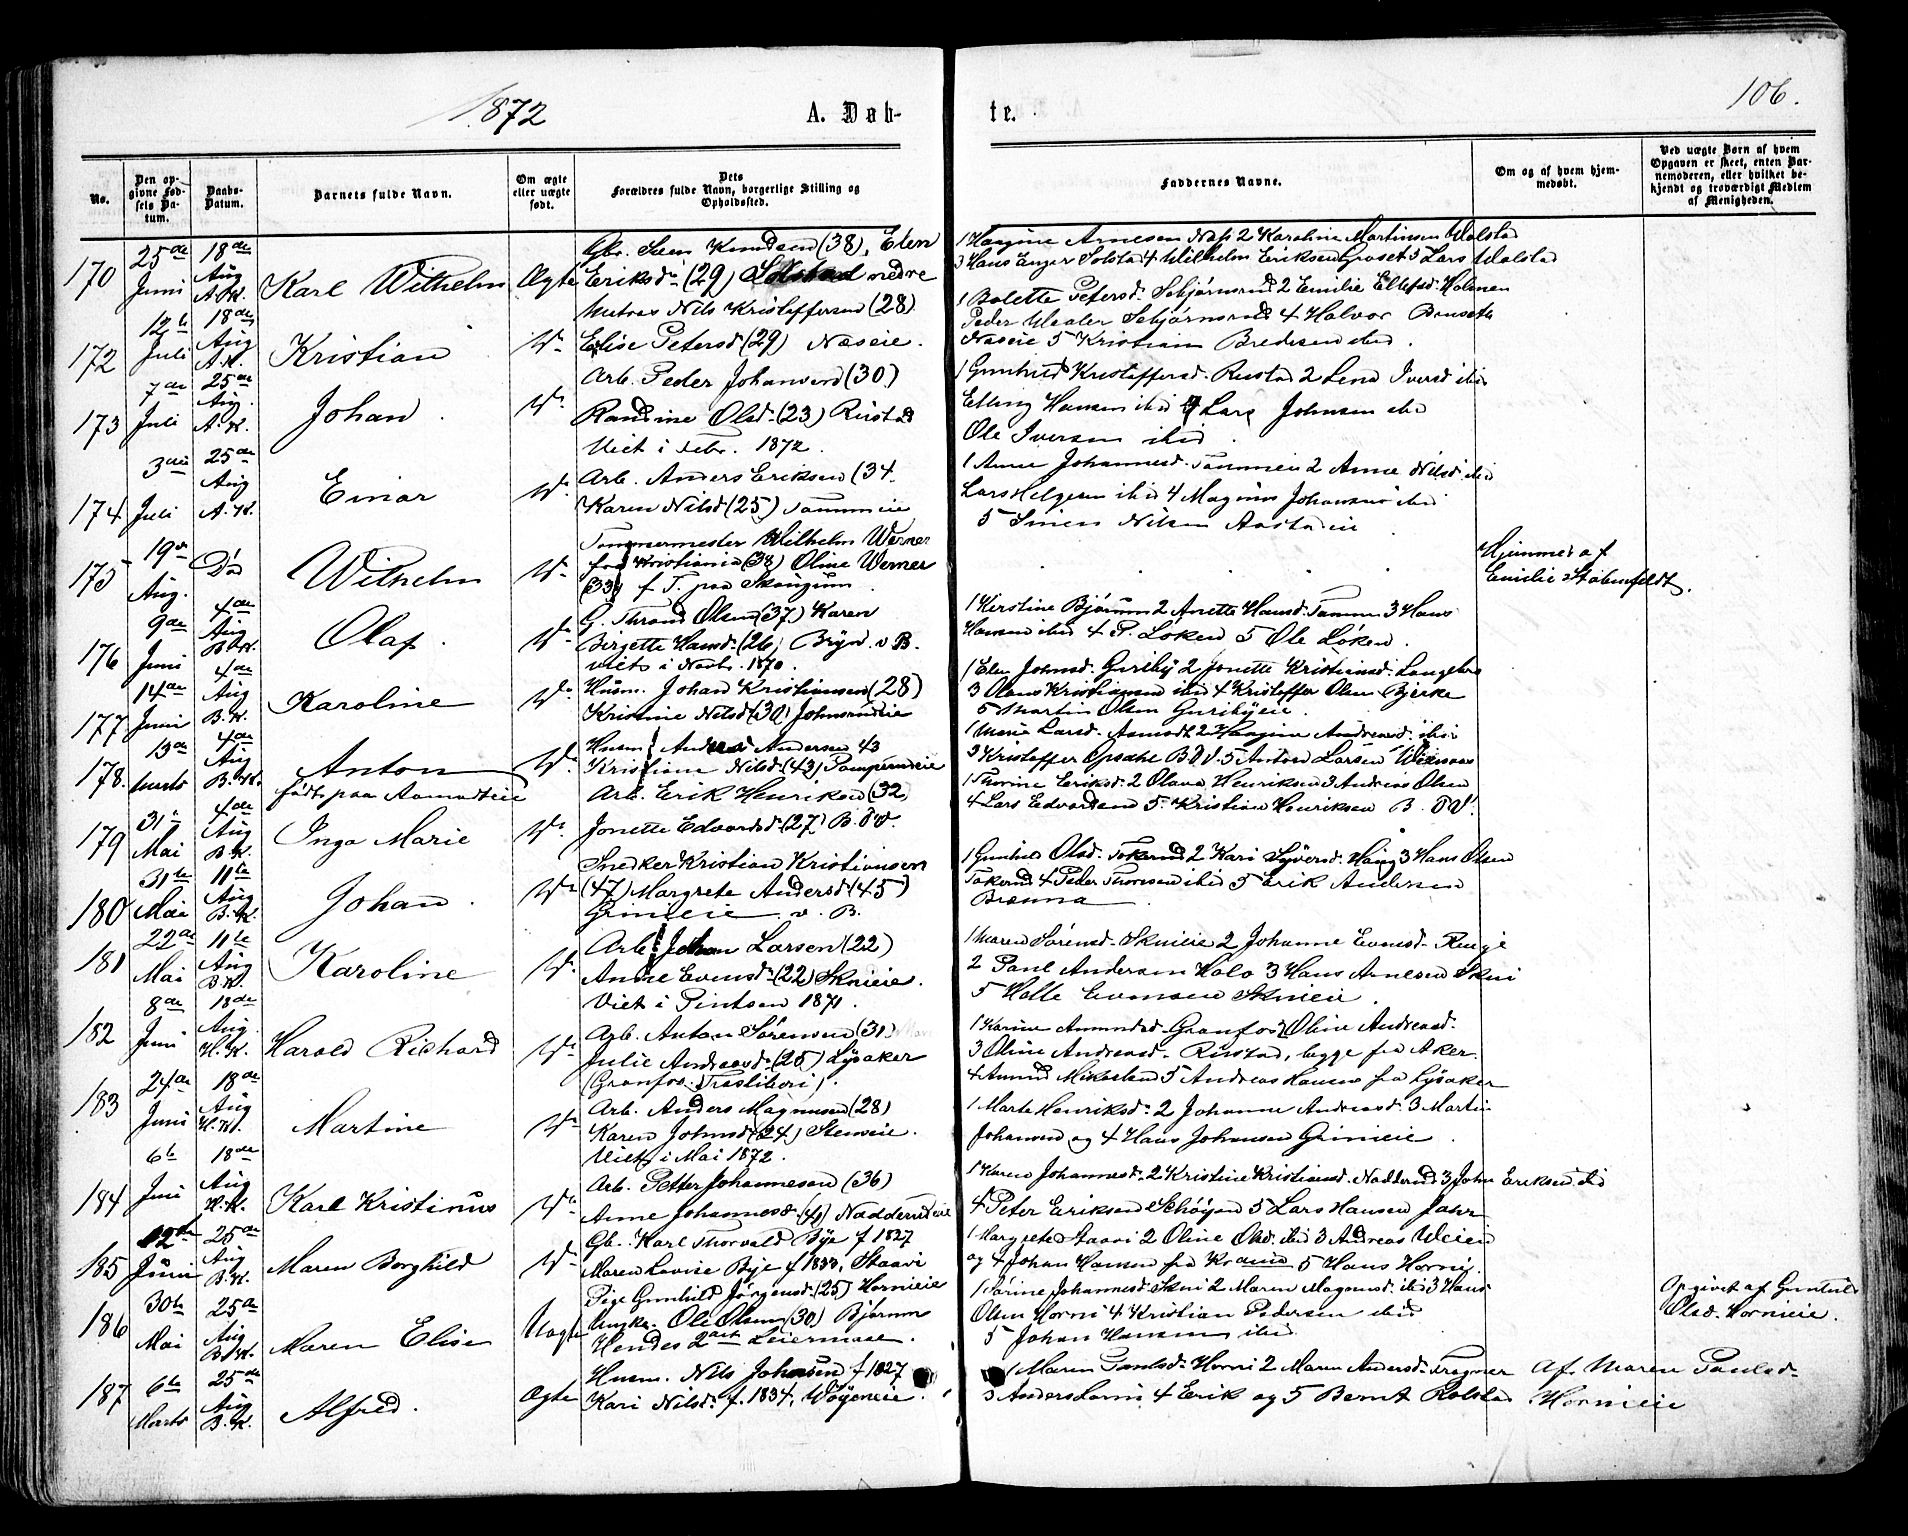 1872
A. Døb-
te.
106.
No.
Den op-
givne Fød-
sels Da-
tum.
Daabs-
Datum.
Barnets fulde Navn.
Om ægte
eller uægte
født.
Dets
Forældres fulde Navn, borgerlige Stilling og
Opholdssted.
Faddernes Navne.
Om og af hvem hjem-
medøbt.
Ved uægte Børn af hvem
Opgaven er skeet, enten Bar-
nemoderen, eller hvilket be-
kjendt og troværdigt Medlem
af Menigheden.
170
25de
Juni
18de
Aug
A.K.
Karl Wilhelm
Ægte
Gbr. Knudsen (38), Elen
Eriksd. (29) nedre
1 Hagine Arnesen Næs 2 Karoline Martinsen Walstad
3 Hans Enger Solstad 4 Wilhelm Eriksen 5 Lars Walstad
172
12te
Juli
18de
Aug
A.K.
Kristian
Do
Nils Kristoffersen (28)
Elise Petersd (29) Næseie.
1 Bolette Petersd. 2 Emilie Ellefsd. Holmen
Peder 4 Halvor
Næseie 5 Kristian Bredesen ibid.
173
7de
Juli
25de
Aug.
A.K.
Johan
Do
Arb. Peder Johansen (30)
Randine Olsd. (23) Rustad
Viet i Febr. 1872.
1 Gunhild Kristoffersd. Rustad 2 Lene Iversd ibid
Elling Hansen ibid 4 Lars Johnsen ibid
Ole Iversen ibid.
174
3die
Juli
25de
Aug
A.K.
Einar
Do
Arb. Anders Eriksen (34
Karen Nilsd (25) Tammeie
1 Anne Johannesd. Tammeie 2 Anne Nilsd ibid
Lars Helgesen ibid 4 Magnus Johansen ibid
5 Simen Nilsen
175
19de
Aug.
Do
Wilhelm
Do
Tømmermester Wilhelm Werner
fra Kristiania (38) Oline Werner
(33) f T. paa Skougum.
Hjemmed af
Emilie Stabenfeldt.
176
9de
Juni
4de
Aug
B.K.
Olaf.
Do
G. Thrond Olsen (37) Karen
Birgitte Hansd. (26) Bryn v B.
viet i Novb. 1870.
1 Kirstine Bjørum 2 Anette Hansd. Tanum 3 Hans
Hansen ibid 4 P. Løken 5 Ole Løken.
177
14de
Juni
4de
Aug
B.K.
Karoline
Do
Husm. Johan Kristiansen (28)
Kristine Nilsd (30) Johnsrudeie
1 Elen Johnsd. Guriby 2 Jonette Kristiansd.
3 Olaus Kristiansen ibid 4 Kristoffer Olsen Bjerke
5 Martin Olsen Guribyeie.
178.
13de
Marts
4de
Aug
B.K.
Anton
født paa Aamodteie
Do
Husm. Andreas Andersen 43
Kristiane Nilsd. (43)
1 Marie Larsd. Aamodt 2 Hagine Andreasd. ibid
3 Kristoffer Opsahl B.V. 5 Anton Larsen
179
31te
Mai
4de
Aug
B.K.
Inga Marie
Do
Arb. Erik Henriksen (32)
Jonette Edvardsd. (27) B.V.
1 Thorine Eriksd. 2 Olava Henriksen 3 Andreas Olsen
4 Lars Edvardsen 5. Kristian Henriksen B.V.
180
31te
Mai
11te
Aug
B.K.
Johan.
Do
Snedker Kristian Kristiansen
(47) Margrete Andersd. (45)
Grinieie v. B.
1 Gunhild Olsd. Tokerud 2 Kari Syversd. Haug 3 Hans Olsen
Tokerud 4 Peder Thoresen ibid 5 Erik Andersen
Brenna
181
22de
Mai
11te
Aug
B.K.
Karoline
Do
Arb. Johan Larsen (22)
Anne Evensd. (22) Skuieie.
Viet i Pintsen 1871.
1 Maren Sørensd. Skuieie 2 Johanne Evensd.
2 Paul Andersen 3 Hans Arnesen Skui
5 Halle Evensen Skuieie.
182
8de
Juni
18de
Aug.
H.K.
Harald Richard
Do
Arb. Anton Sørensen (31)
Julie Andreasd. (25) Lysaker
(Granfos Træsliberi).
1 Karine Amundsd. Granfos 2 Oline Andreasd.
3 Oline Andreasd. Rustad, begge fra Aker.
4 Amund Mikalsen 5 Andreas Hansen fra Lysaker
183
24de
Juni
18de
Aug
H.K.
Martine
Do
Arb. Anders Magnusen (28)
Karen Johnsd (24) Steneie.
Viet i Mai 1872.
1 Marte Henriksd. 2 Johanne Andreasd. 3 Martin
Johansen og 4 Hans Johansen Grinieie.
184
6te
Juni
18de
Aug
H.K.
Karl Kristinus
Do
Arb. Petter Johannesen (36)
Anne Johannesd. (40) Nadderudeie
1 Karen Johannesd. 2 Kristine Kristiansd. Nadderud 3 John Eriksen ibid
4 Peter Eriksen 5 Lars Hansen
185
12te
Juni
25de
Aug
B.K.
Maren Borghild
Do
Gb. Karl Thorvald Bye f 1827
Maren Lovise Bye f 1833, Staavi
1 Margrete Staavi 2 Oline Olsd. ibid 3 Andreas Weien
og 4 Johan Hansen fra 5 Hans Horni.
186
30te
Mai
25de
Aug
B.K.
Maren Elise
Uægte
Pige Gunhild Jørgensd. (25) Hornieie
Ungk. Ole Olsen (30) Bjørum
Hendes 2det Leiermaal.
1 Karine Johannesd. Skui 2 Maren Magnusd. ibid 3 Hans
Olsen Horni 4 Kristian Pedersen ibid
5 Johan Hansen ibid.
Opgivet af Gunhild
Olsd. Hornieie.
187
6te
Marts
25de
Aug
B.K.
Alfred.
Ægte
Husm. Nils Johansen f 1827
Kari Nilsd. f. 1834, Wøyeneie.
1 Maren Paulsd. Horni 2 Maren Andersd.
3 Anders Horni 4 Erik og 5 Bernt Rolstad
Af Maren Paulsd.
Hornieie